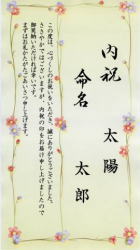 内祝
命名
太陽
太郎
この度は、心づくしのお祝いをいただき、誠にありがとうございました。
ささやかではございますが、内祝の印をお届け申し上げましたので
御笑納いただければ幸いです。
まずは御礼かたがたごあいさつ申し上げます。